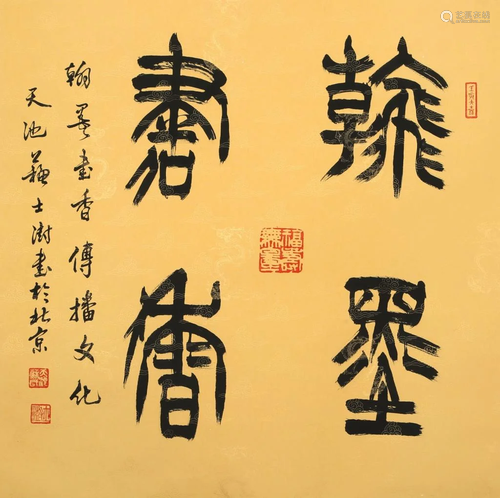 翰墨
書香
翰墨書香傳播文化
天池蘇士澍書於北京
福壽無量